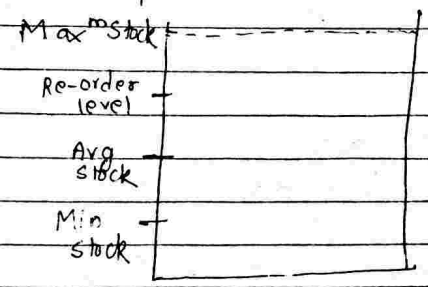 Maxᵐ Stock
Re-order
level
Avg
stock
Min
stock